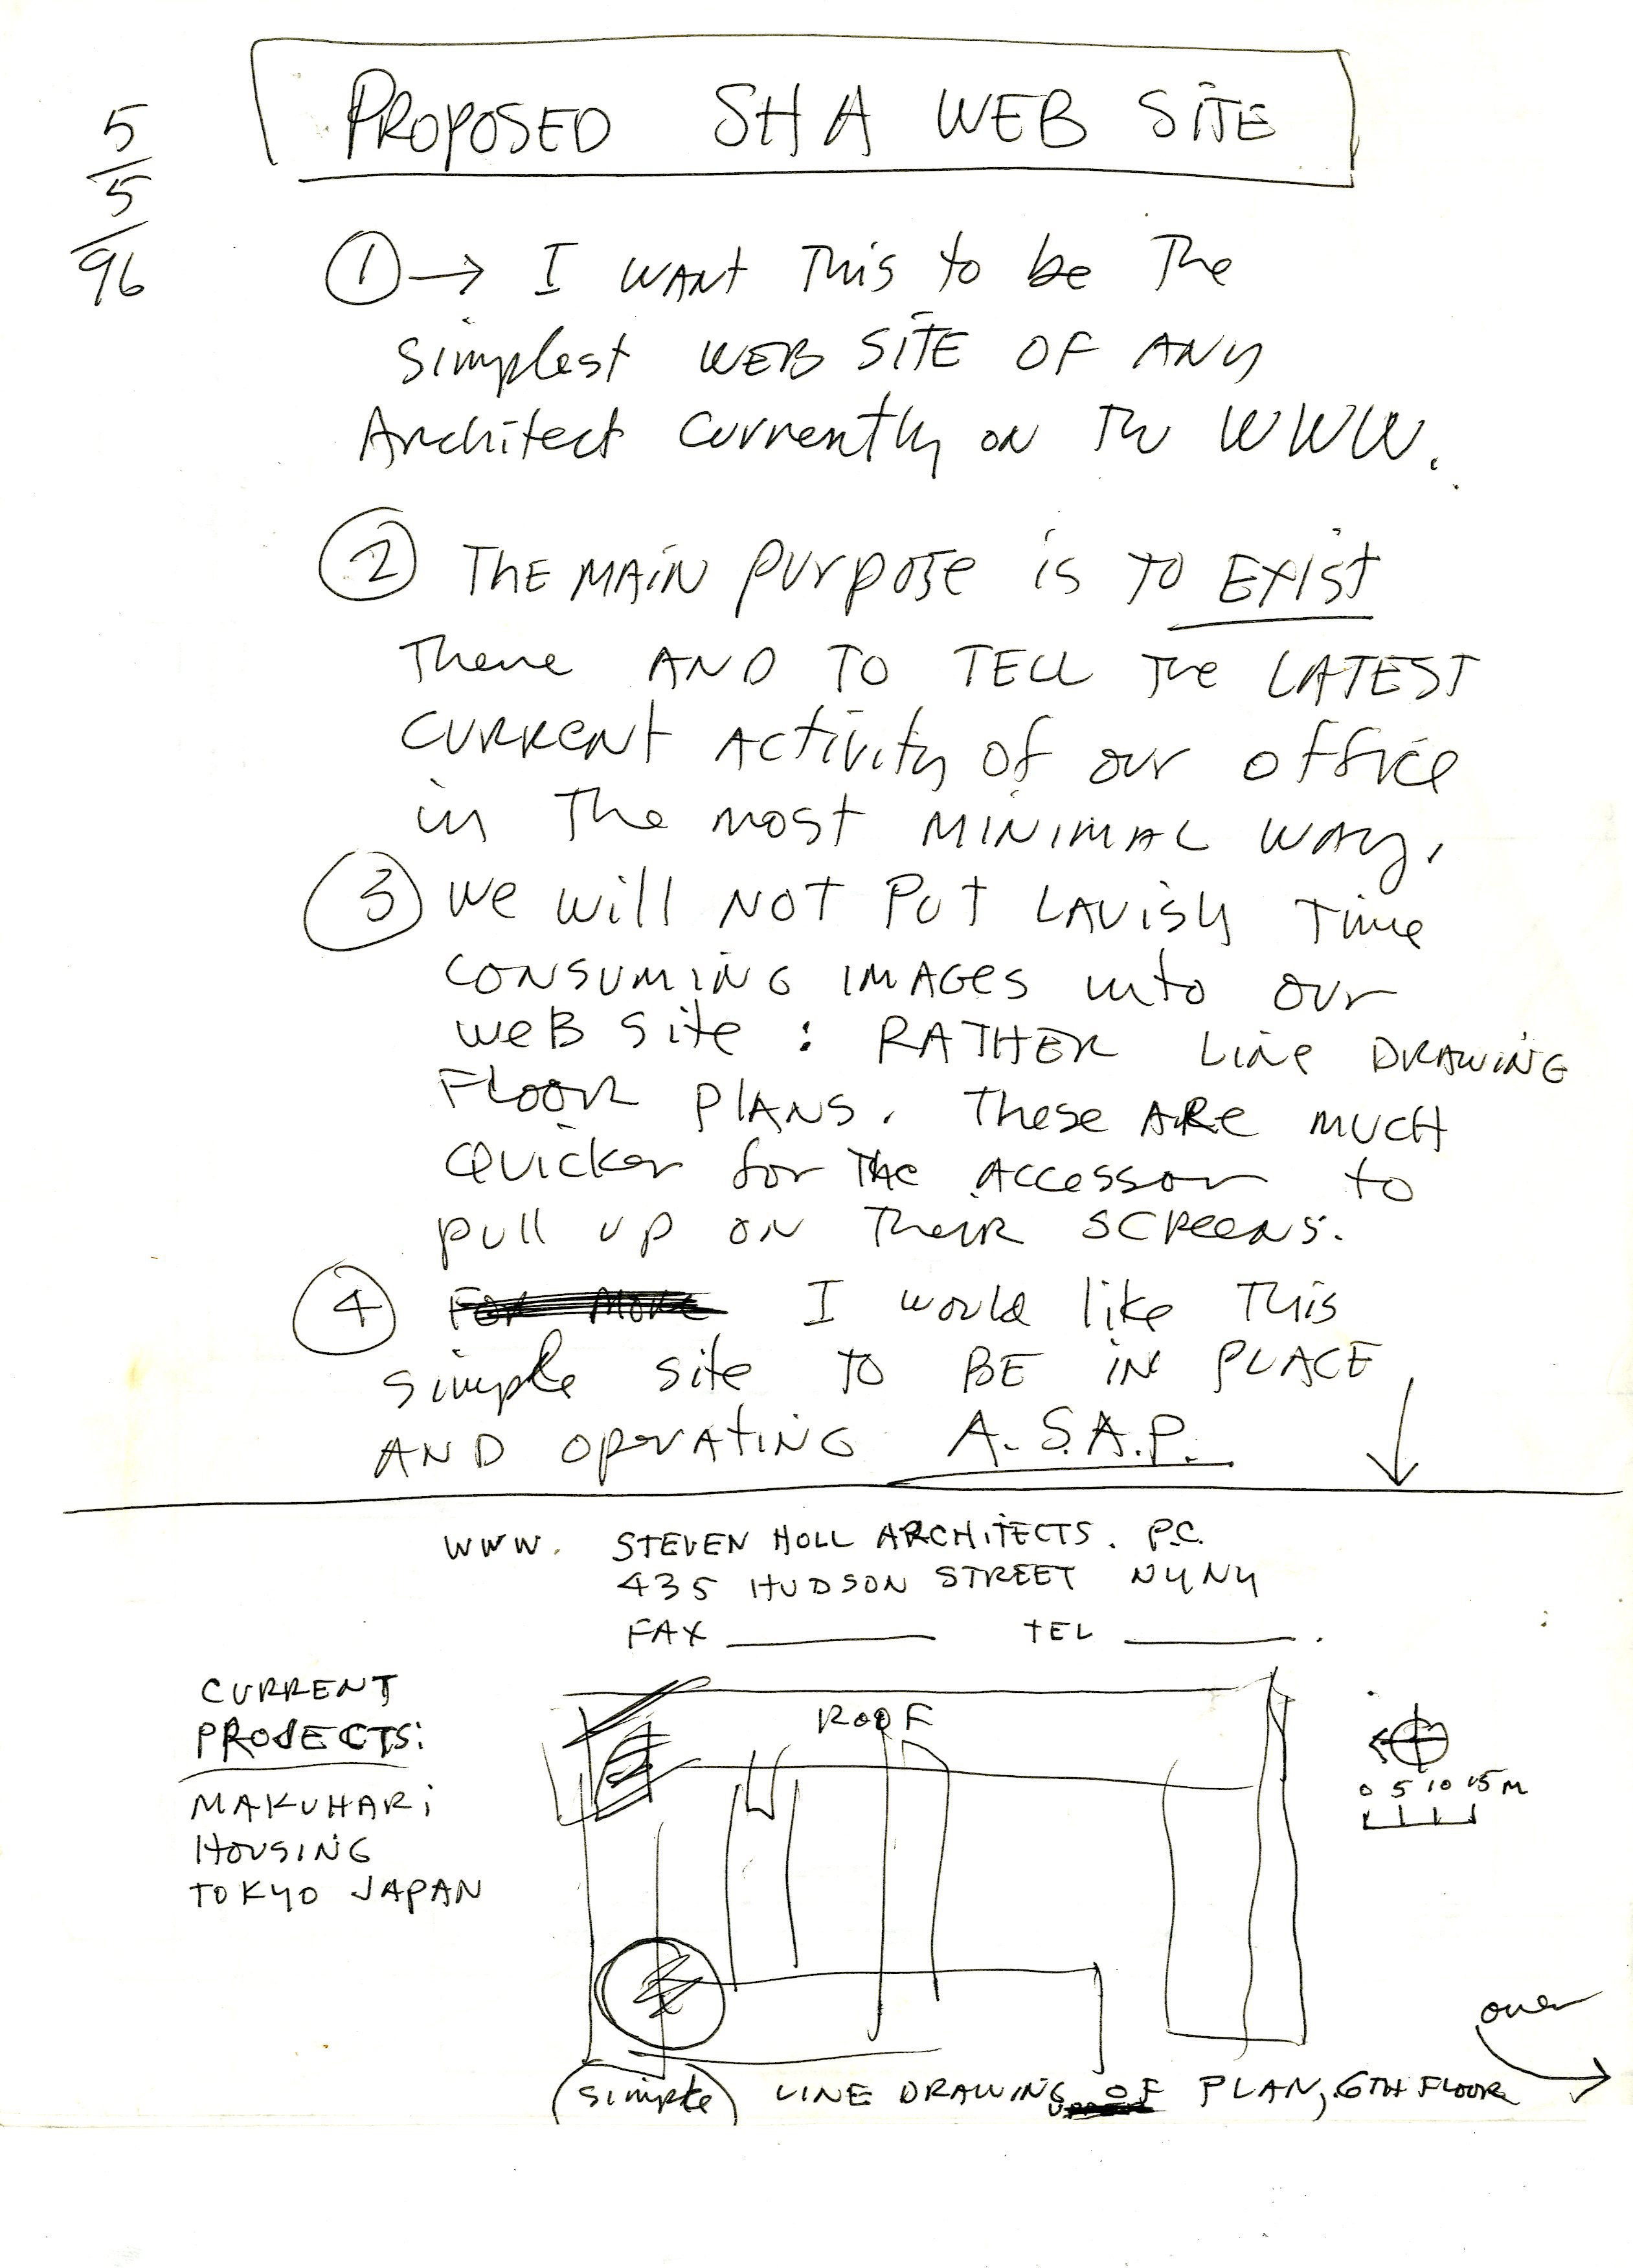 5/5/96
PROPOSED SHA WEB SITE
① → I WANT THIS to be The
simplest WEB SITE OF ANY
Architect currently on The WWW.
② THE MAIN purpose is TO EXIST
There AND TO TELL The LATEST
CURRENT ACTIVITY OF our office
in The most MINIMAL WAY.
③ we will NOT PUT LAVISH Time
CONSUMING IMAGES into our
WEB Site : RATHER LINE DRAWING
FLOOR PLANS. These ARE MUCH
Quicker for The Accessor to
pull up ON Their SCREENS.
④ For More I would like This
simple site TO BE IN PLACE
AND OPERATING A.S.A.P.
WWW. STEVEN HOLL ARCHITECTS. P.C.
435 HUDSON STREET NY NY
FAX TEL
CURRENT
PROJECTS:
MAKUHARI
HOUSING
TOKYO JAPAN
ROOF
0 5 10 15 M
over
(simple) LINE DRAWING OF PLAN, 6TH FLOOR